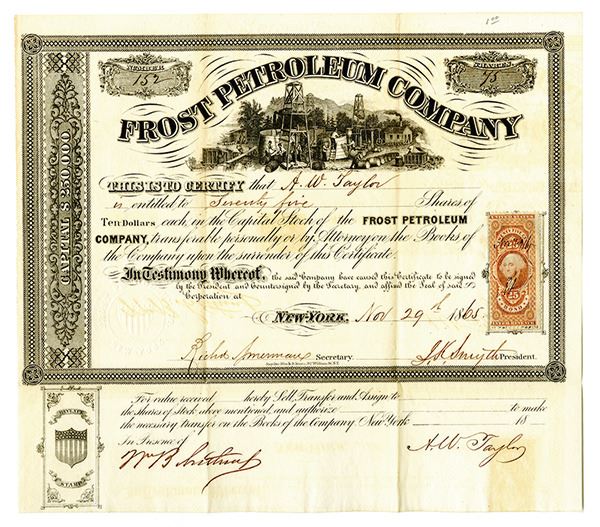 1 00
NUMBER
152
SHARES
75
FROST PETROLEUM COMPANY
CAPITAL $250,000
THIS IS TO CERTIFY that A. W. Taylor
is entitled to Seventy five Shares of
Ten Dollars each, in the Capital Stock of the FROST PETROLEUM
COMPANY, transferable personally or by Attorney on the Books of
the Company upon the surrender of this Certificate.
In Testimony Whereof, the said Company have caused this Certificate to be signed
by the President and Countersigned by the Secretary, and affixed the Seal of said
Corporation at
NEW-YORK, Nov 29th 1865
Secretary.
J. K. Smyth President.
25
For value received hereby Sell, Transfer and Assign to
the shares of Stock above mentioned and authorize to make
the necessary transfer on the Books of the Company New York 18
In Presence of
Wm B
A. W. Taylor
STAMP